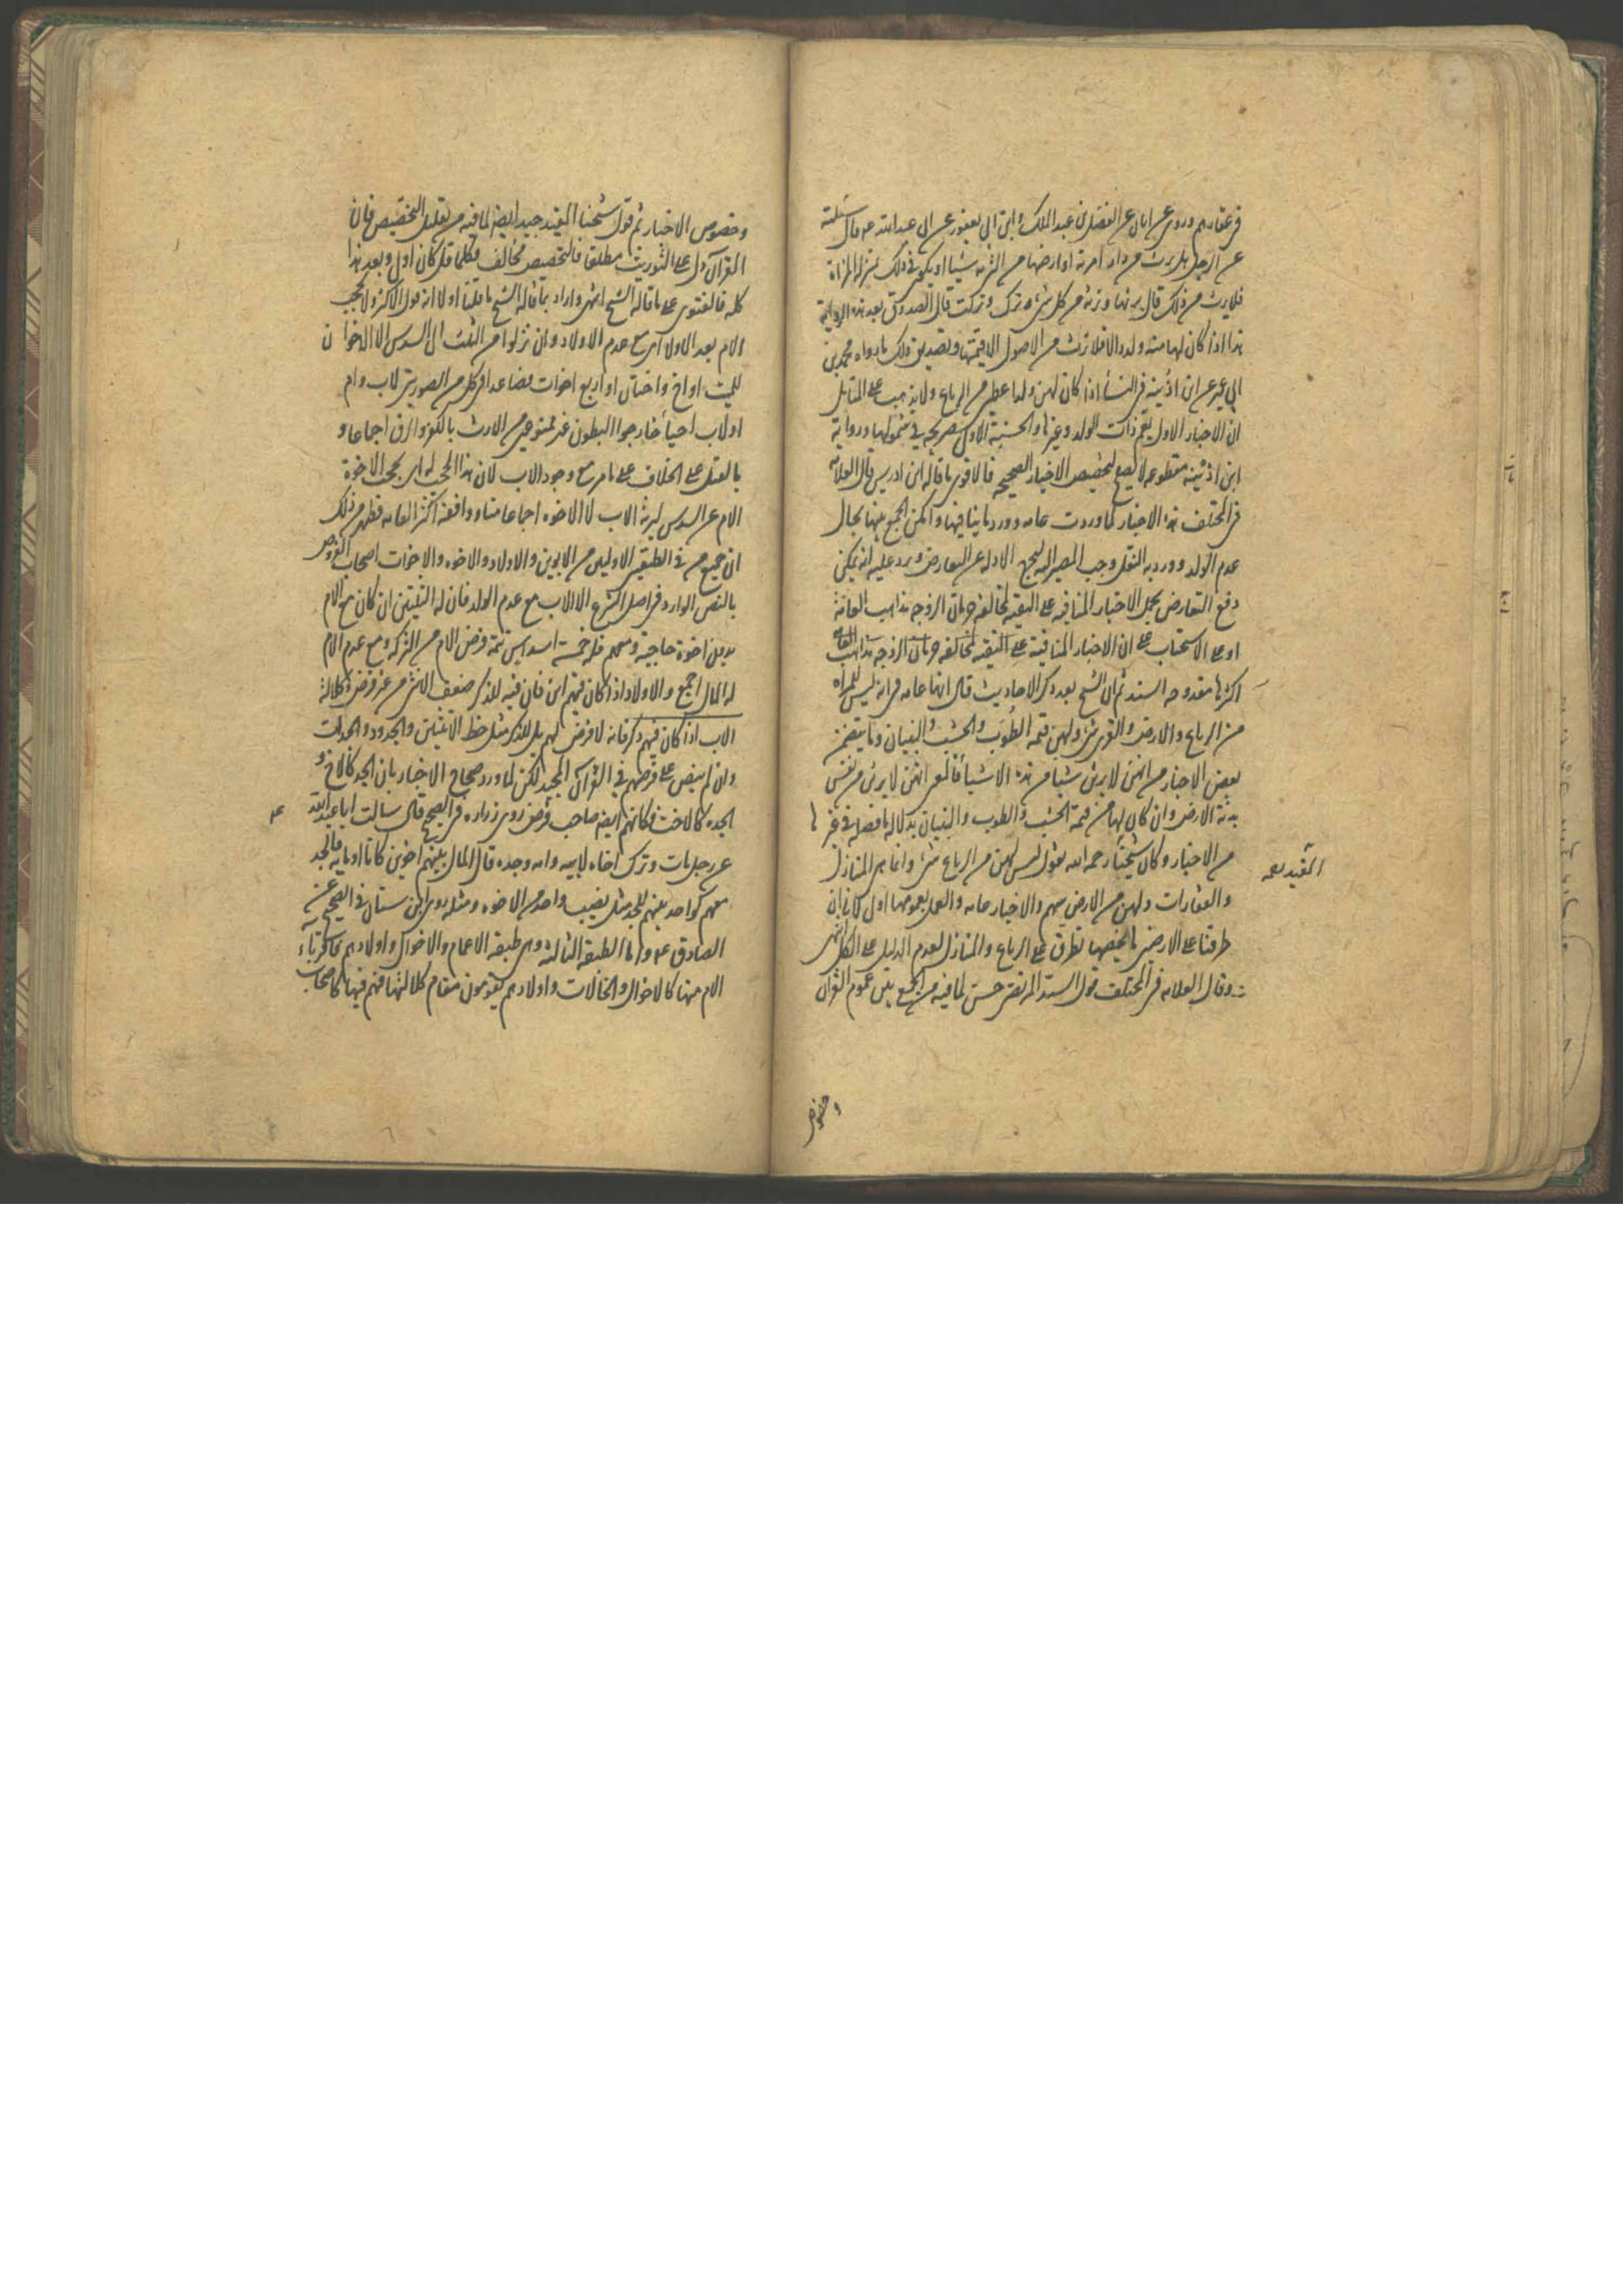 في عقارهم وروى عن ابان عن الفضل بن عبد الملك وابن ابي يعفور عن ابي عبد الله عه قال سئلته
عن الرجل هل يرث من دار امرته او ارضها من التربة شيئا او يكون في ذلك بمنزلة المرأة
فلا يرث من ذلك قال يرثها وترثه من كل شيء ترك وتركت قال الصدوق بعد هذه الرواية
هذا اذا كان لها منه ولد والا فلا ترث من الاصول الا قيمتها وتصديق ذلك ما رواه محمد بن
ابي عمير عن ابن اذينه في النسأ اذا كان لهن ولد اعطين من الرباع ولا يذهب على المتأمل
ان الاخبار الاول يعم ذات الولد وغيرها والحسنة الاول صريحه في شمولها ورواية
ابن اذينه مقطوعه لا يصح لتخصيص الاخبار الصحيحه فالاقوى ما قاله ابن ادريس قال العلامه
في المختلف هذه الاخبار لما وردت عامه وورد ما ينافيها وامكن الجمع بينها بحال
عدم الولد وورد به النقل وجب المصير اليه الادله عن التعارض ويرد عليه انه يمكن
دفع التعارض بحمل الاخبار المنافيه على التقيه لمخالفه حرمان الزوجه مذاهب العامه
او على الاستحباب على ان الاخبار المنافية على التقيه لمخالفه حرمان الزوجه مذاهب العامه
اكثرها مقدوحه السند ثم ان الشيخ بعد ذكر الاحاديث قال انها عامه في انه ليس للمراه
من الرباع والارض والقرى شئ ولهن قيمه الطوب والخشب والبنيان وما يتضمن
بعض الاخبار من انهن لا يرثن شيئا من هذه الاشيأ فالمعنى انهن لا يرثن من نفس
هذه الارض وان كان لها من قيمة الخشب والطوب والبنيان بدلاله ما فصل في غيرها
من الاخبار وكان شيخنا رحمه الله يقول ليس لهن من الرباع شئ وانما هي المنازل
المفيد
والعقارات ولهن من الارض سهم والاخبار عامه والعمل بعمومها اولى لانا ان
طرقنا على الارضين ما يخصها تطرق على الرباع والمنازل لعدم الدليل على الكل انتهى
وقال العلامه في المختلف قول السيد المرتضى حسن لما فيه من الجمع بين عموم القران
وخصوص
وخصوص الاخبار ثم قول شيخنا المفيد جيد ايضا لما فيه من تقليل التخصيص فان
القرآن دل على التوريث مطلقا فالتخصيص مخالف فكلما قل كان اولى وبعد هذا
كله فالفتوى على ما قاله الشيخ انتهى واراد بما قاله الشيخ ما قلنا اولا انه قول الاكثر ولا يحجب
الام بعد الاولاد اي مع عدم الاولاد وان نزلوا من الثلث الى السدس الا الاخوان
للميت او اخ واختان او اربع اخوات فصاعدا في كل من الصورتين لاب وام
او لاب احيأ خارجوا البطون غير ممنوعين من الارث بالكفر والرق اجماعا و
بالقتل على الخلاف على ما مر مع وجود الاب لان هذا الحجب له اي يحجب الاخوة
الام عن السدس ليرثه الاب لا الاخوه اجماعا منا ووافقنا اكثر العامه فظهر من ذلك
ان جميع من في الطبقتين الاوليين من الابوين والاولاد والاخوه والاخوات اصحاب الفروض
بالنص الوارد في اصل الشرع الا الاب مع عدم الولد فان له الثلثين ان كان مع الام
بدون اخوة حاجبة ومعهم فله خمسة اسداس تتمة فرض الام من التركه ومع عدم الام
له المال اجمع والاولاد اذا كان فيهم ابن فان فيه للذكر ضعف الانثى من غير فرض وكلالة
الاب اذا كان فيهم ذكر فانه لا فرض لهم بل للذكر مثل حظ الانثيين والجدود والجدات
وان لم ينص على فرضهم في القرآن المجيد لكن لما ورد صحاح الاخبار بان الجد كالاخ و
الجده كالاخت فكانهم ايضا صاحب فرض روى زراره في الصحيح قال سالت ابا عبد الله
ع
عن رجل مات وترك اخاه لابيه وامه وجده قال المال بينهم اخوين كانا او مايه فالجد
معهم كواحد منهم للجد مثل نصيب واحد من الاخوه ومثله روى ابن سنان في الصحيح عن
الصادق عه واما الطبقه الثالثه وهي طبقه الاعمام والاخوال واولادهم فاقرباء
الام منها كالاخوال والخالات واولادهم يقومون مقام كلالتها فهم فيها كاصحاب